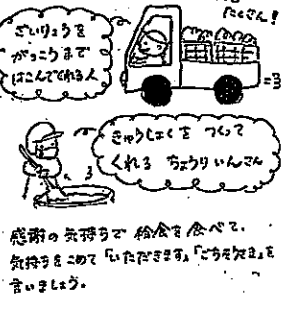 たくさん！
ざいりょうを
がっこうまで
はこんでくれる人
きゅうしょくを つくって
くれる ちょうりいんさん
感謝の気持ちで 給食を食べて、
気持ちをこめて「いただきます」「ごちそうさま」を
言いましょう。